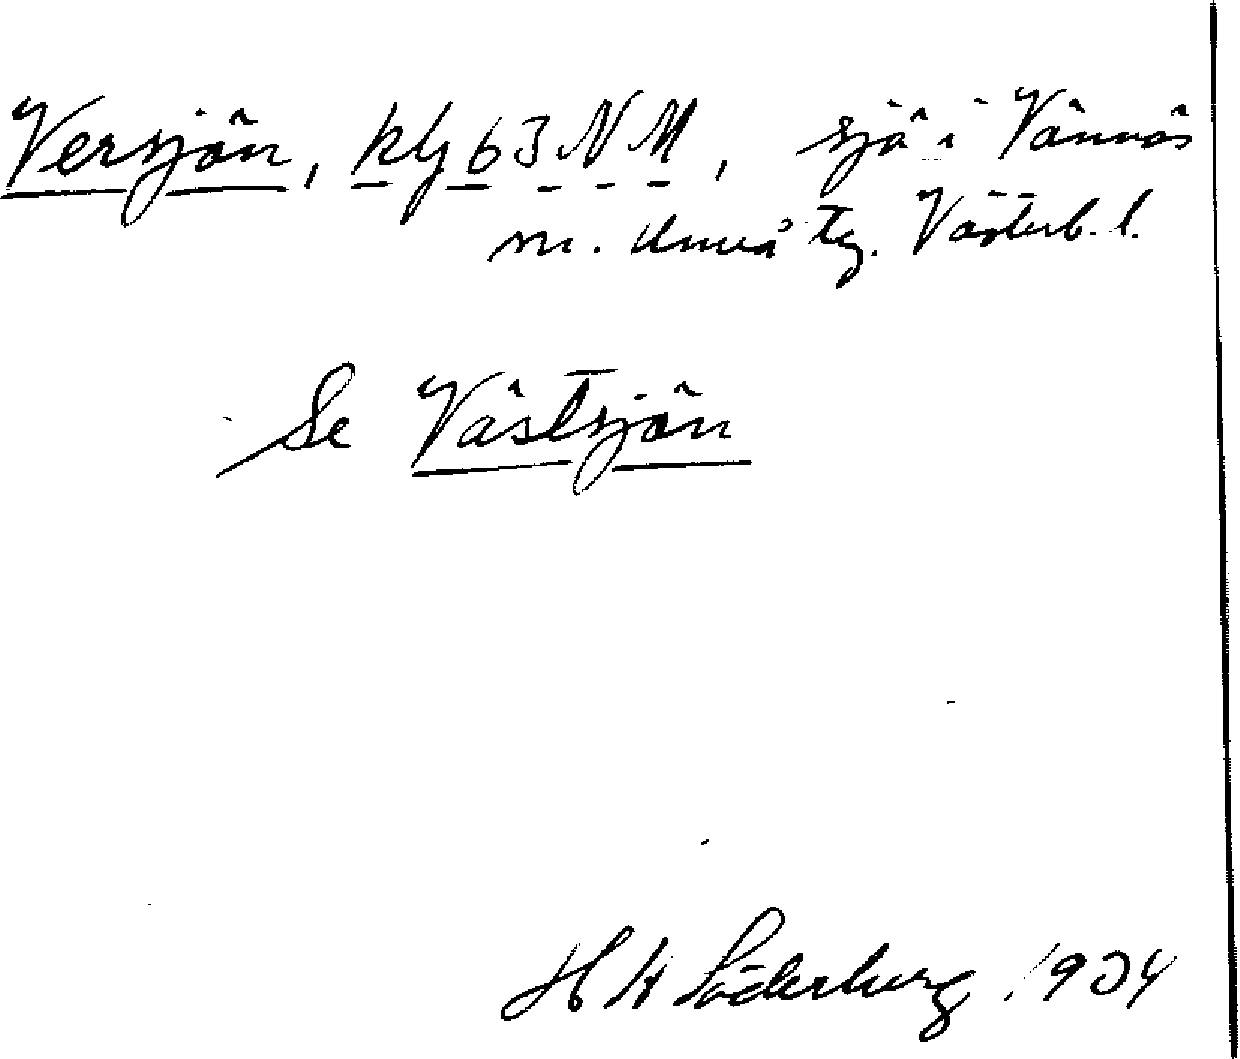 Versjön, klj 63 NM, sjö i Vännäs
m. Umeå tg. Västerb. l.
Se Västsjön
Söderberg 1934